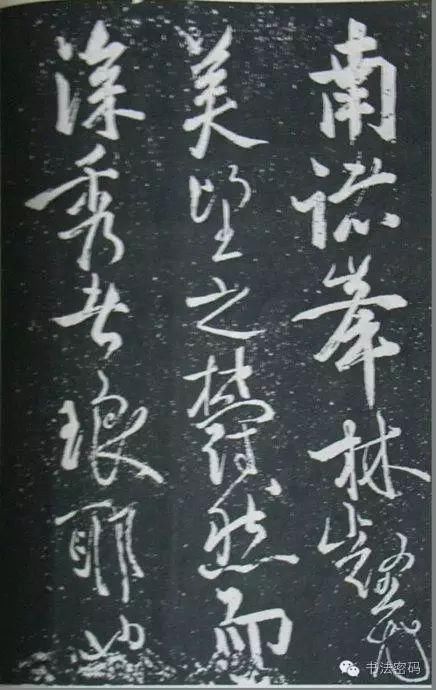 南諸峯林壑尤
美望之蔚然而
深秀者琅耶也
书法密码